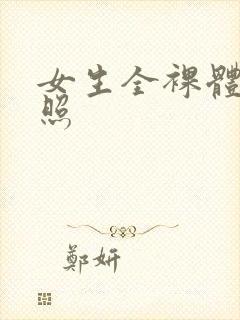 女生全裸體
照
鄭妍